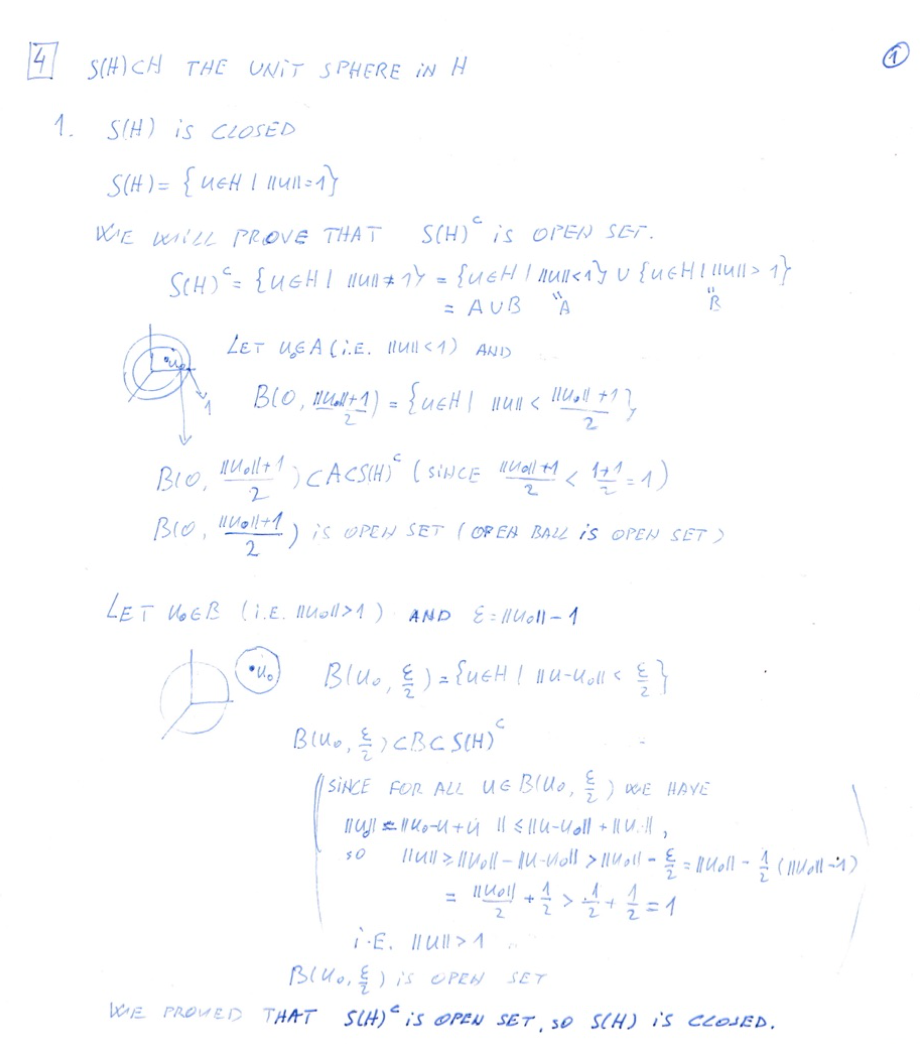 4 S(H)⊂H THE UNIT SPHERE IN H
①
1. S(H) IS CLOSED
S(H) = {u∈H | ||u||=1}
WE WILL PROVE THAT S(H)ᶜ IS OPEN SET.
S(H)ᶜ = {u∈H | ||u||≠1} = {u∈H | ||u||<1} ∪ {u∈H | ||u||>1}
= A∪B "A "B
LET u₀∈A (i.E. ||u||<1) AND
u₀
1
B(0, (||u₀||+1)/2) = {u∈H | ||u|| < (||u₀||+1)/2}
B(0, (||u₀||+1)/2) ⊂ A ⊂ S(H)ᶜ (SINCE (||u₀||+1)/2 < (1+1)/2 = 1)
B(0, (||u₀||+1)/2) IS OPEN SET (OPEN BALL IS OPEN SET)
LET u₀∈B (i.E. ||u₀||>1) AND ε=||u₀||-1
u₀ B(u₀, ε/2) = {u∈H | ||u-u₀|| < ε/2}
B(u₀, ε/2) ⊂ B ⊂ S(H)ᶜ
(SINCE FOR ALL u∈B(u₀, ε/2) WE HAVE
||u₀|| = ||u₀-u+u|| ≤ ||u-u₀|| + ||u||,
SO ||u|| ≥ ||u₀|| - ||u-u₀|| > ||u₀|| - ε/2 = ||u₀|| - 1/2 (||u₀||-1)
= ||u₀||/2 + 1/2 > 1/2 + 1/2 = 1
i.E. ||u||>1 )
B(u₀, ε/2) IS OPEN SET
WE PROVED THAT S(H)ᶜ IS OPEN SET, SO S(H) IS CLOSED.